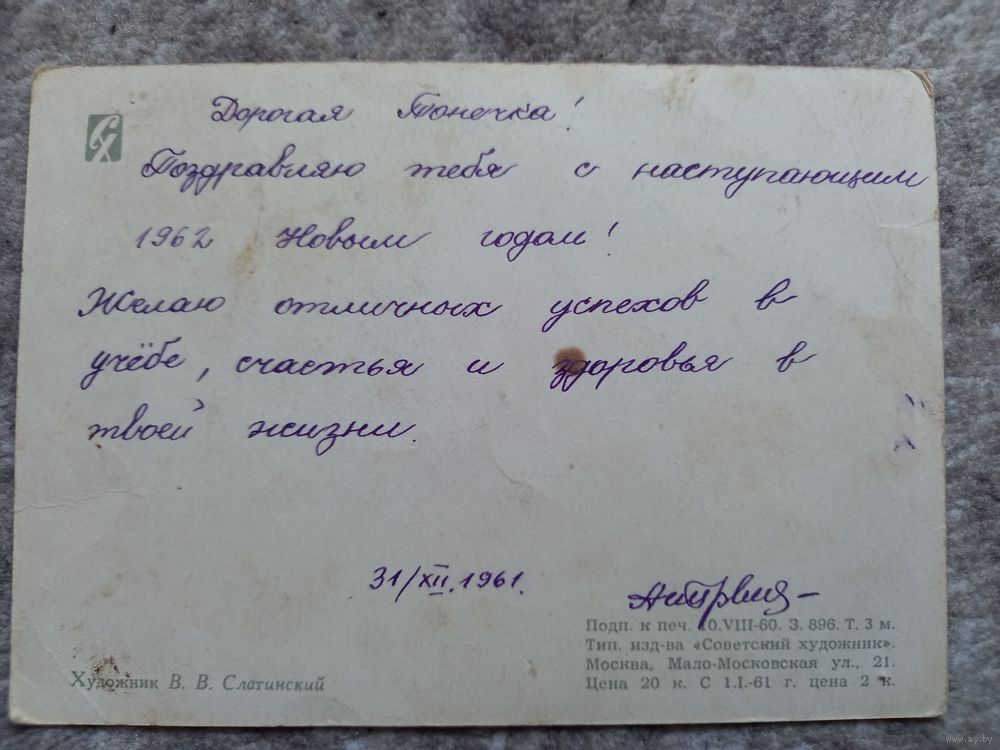 Дорогая Тонечка!
Поздравляю тебя с наступающим
1962 Новым годом!
Желаю отличных успехов в
учёбе, счастья и здоровья в
твоей жизни.
31/XII.1961.
Подп. к печ. 10.VIII-60. З. 896. Т. 3 м.
Тип. изд-ва «Советский художник».
Москва, Мало-Московская ул., 21.
Цена 20 к. С 1.I.-61 г. цена 2 к.
Художник В. В. Слатинский
www.ay.by